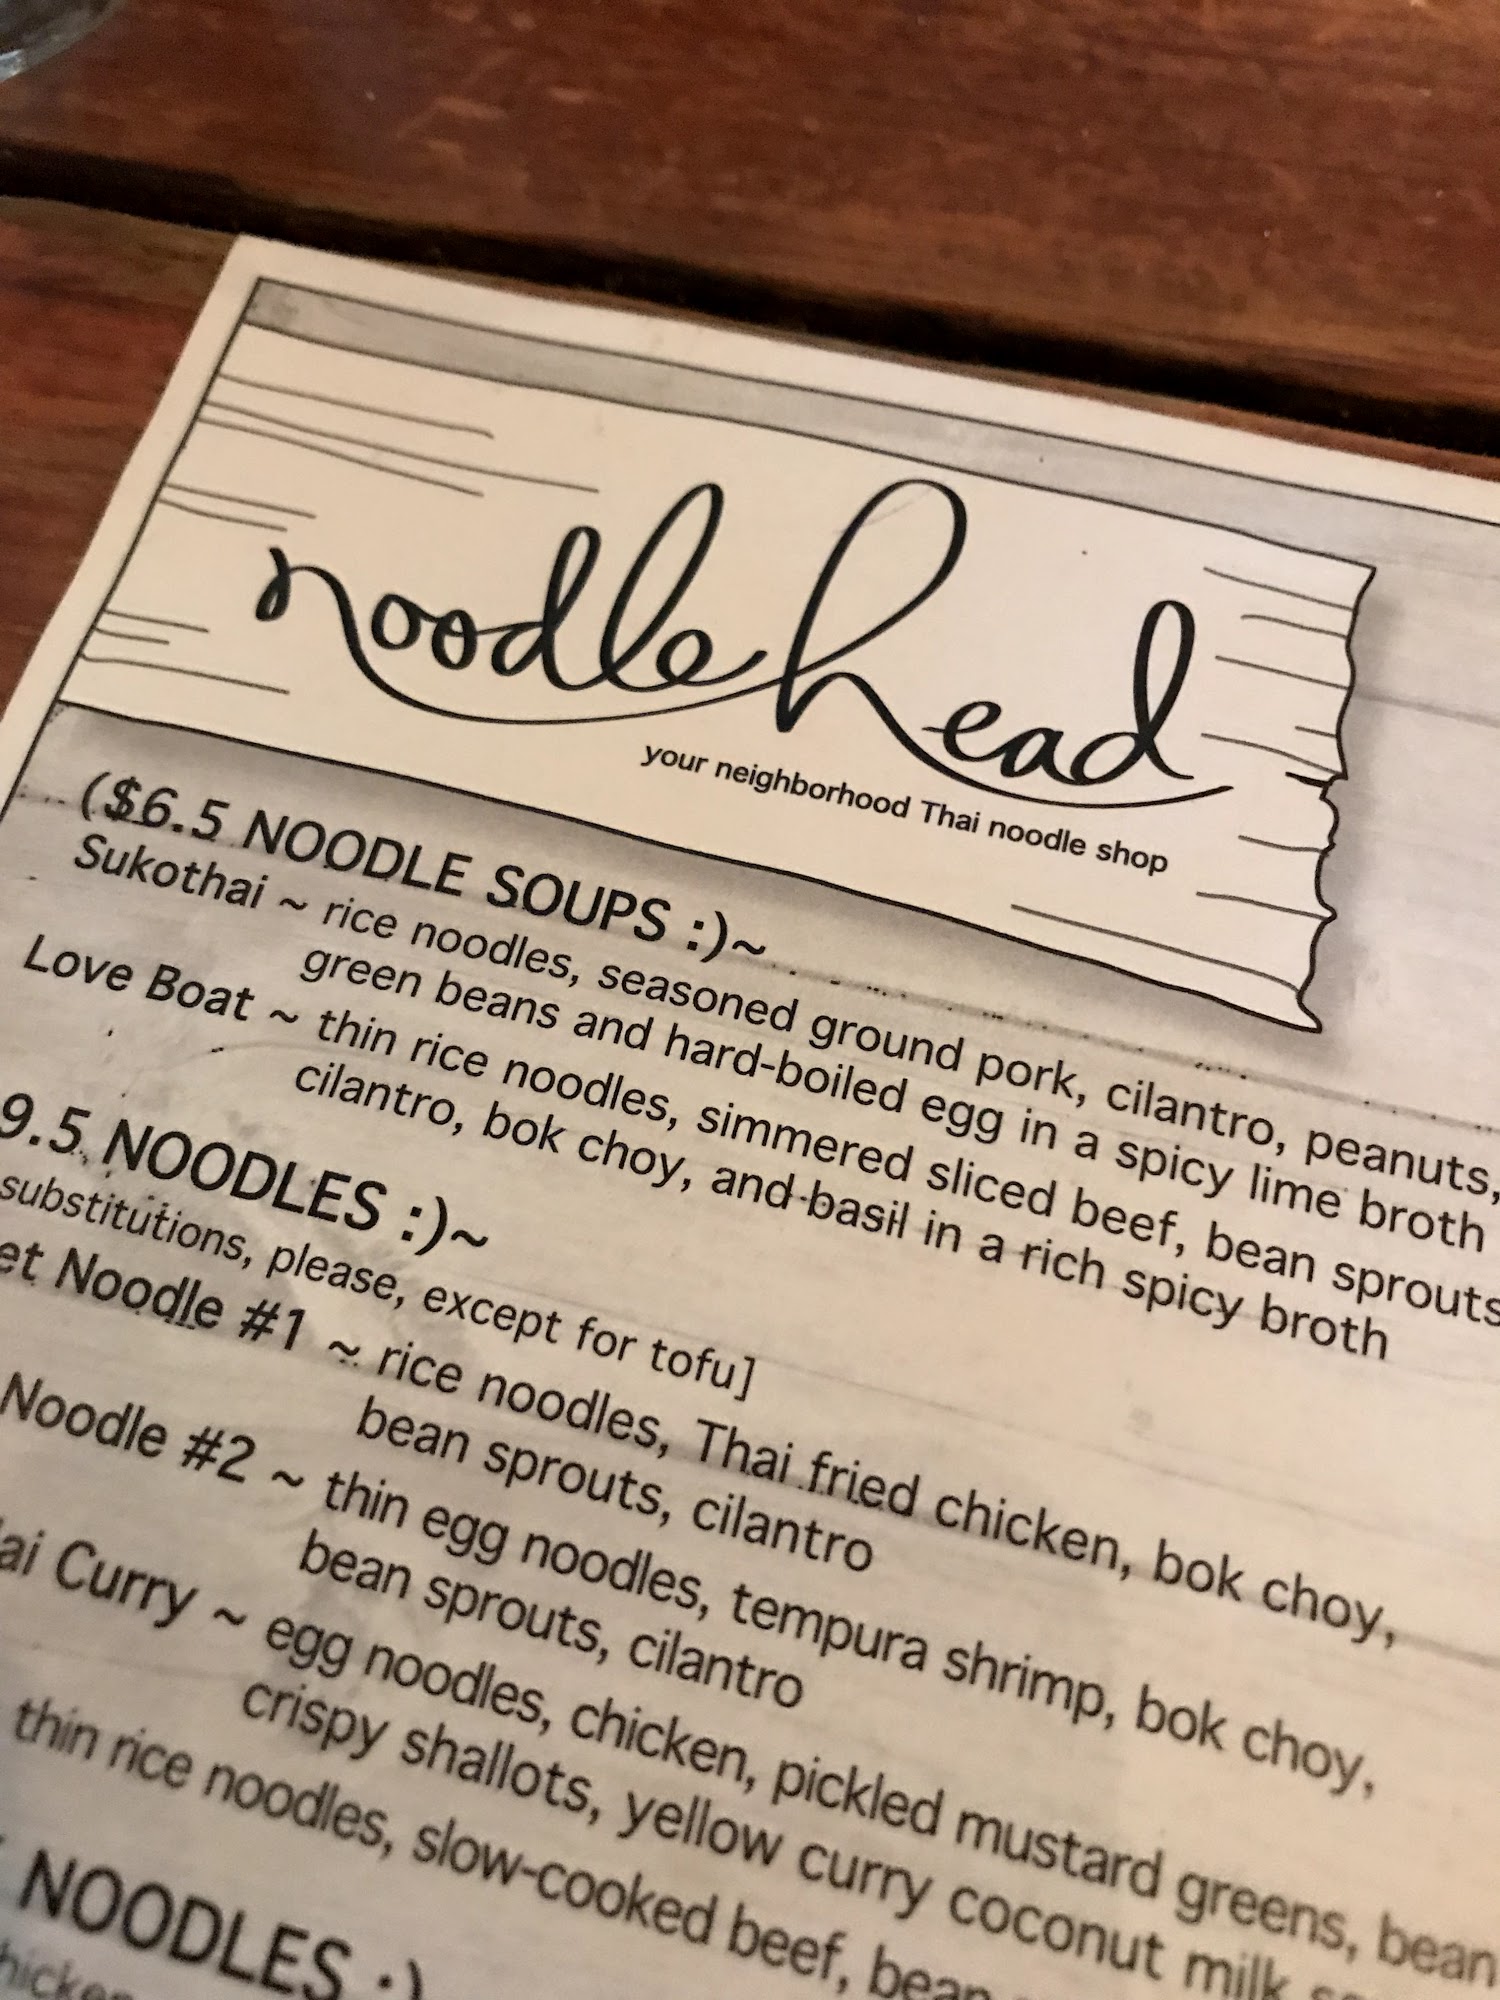 noodlehead
your neighborhood Thai noodle shop
($6.5 NOODLE SOUPS :)~
Sukothai ~ rice noodles, seasoned ground pork, cilantro, peanuts,
green beans and hard-boiled egg in a spicy lime broth
Love Boat ~ thin rice noodles, simmered sliced beef, bean sprouts
cilantro, bok choy, and basil in a rich spicy broth
9.5 NOODLES :)~
substitutions, please, except for tofu]
et Noodle #1 ~ rice noodles, Thai fried chicken, bok choy,
bean sprouts, cilantro
Noodle #2 ~ thin egg noodles, tempura shrimp, bok choy,
bean sprouts, cilantro
ai Curry ~ egg noodles, chicken, pickled mustard greens, bean
crispy shallots, yellow curry coconut milk
thin rice noodles, slow-cooked beef, bean
NOODLES :)